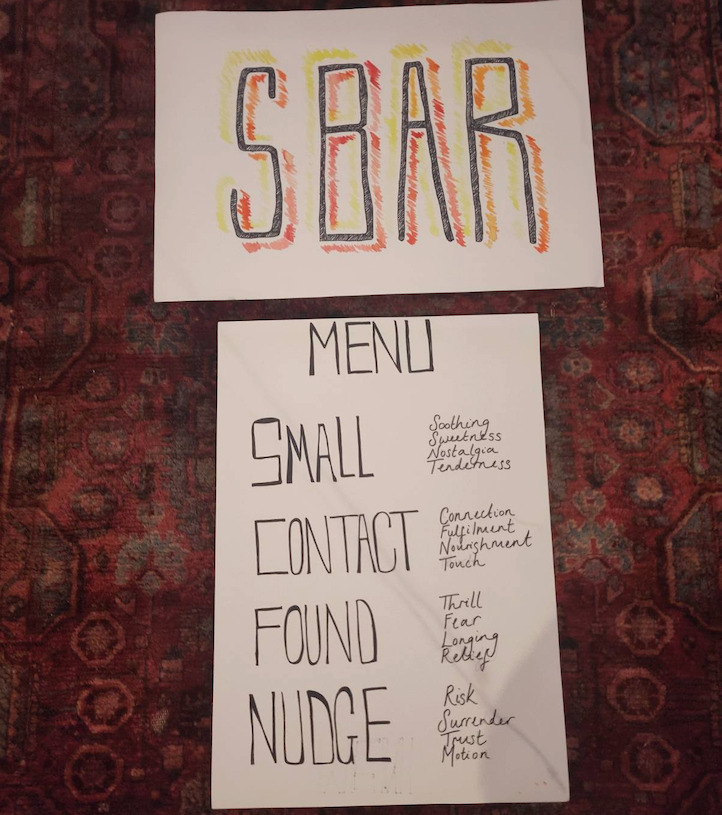 SBAR
MENU
SMALL
Soothing
Sweetness
Nostalgia
Tenderness
CONTACT
Connection
Fulfilment
Nourishment
Touch
FOUND
Thrill
Fear
Longing
Relief
NUDGE
Risk
Surrender
Trust
Motion